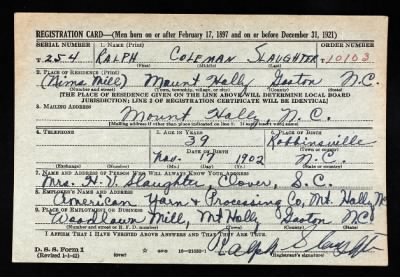 REGISTRATION CARD—(Men born on or after February 17, 1897 and on or before December 31, 1921)
SERIAL NUMBER 1. NAME (Print) ORDER NUMBER
T 254 RALPH COLEMAN SLAUGHTER T 10103
(First) (Middle) (Last)
2. PLACE OF RESIDENCE (Print)
(Kims Mill) Mount Holly Gaston N.C.
(Number and street) (Town, township, village, or city) (County) (State)
[THE PLACE OF RESIDENCE GIVEN ON THE LINE ABOVE WILL DETERMINE LOCAL BOARD
JURISDICTION; LINE 2 OF REGISTRATION CERTIFICATE WILL BE IDENTICAL]
3. MAILING ADDRESS
Mount Holly N. C.
[Mailing address if other than place indicated on line 2. If same insert word same]
4. TELEPHONE 5. AGE IN YEARS 6. PLACE OF BIRTH
39 Robbinsville
DATE OF BIRTH (Town or county)
Nov. 17 1902 N.C.
(Exchange) (Number) (Mo.) (Day) (Yr.) (State or country)
7. NAME AND ADDRESS OF PERSON WHO WILL ALWAYS KNOW YOUR ADDRESS
Mrs. H. V. Slaughter, Clover, S.C.
8. EMPLOYER'S NAME AND ADDRESS
American Yarn & Processing Co, Mt. Holly, N.C.
9. PLACE OF EMPLOYMENT OR BUSINESS
Woodlawn Mill, Mt Holly Gaston N.C.
(Number and street or R. F. D. number) (Town) (County) (State)
I AFFIRM THAT I HAVE VERIFIED ABOVE ANSWERS AND THAT THEY ARE TRUE.
D. S. S. Form 1
(Revised 1-1-42) (over) 16—21630-1
Ralph Slaughter
(Registrant's signature)